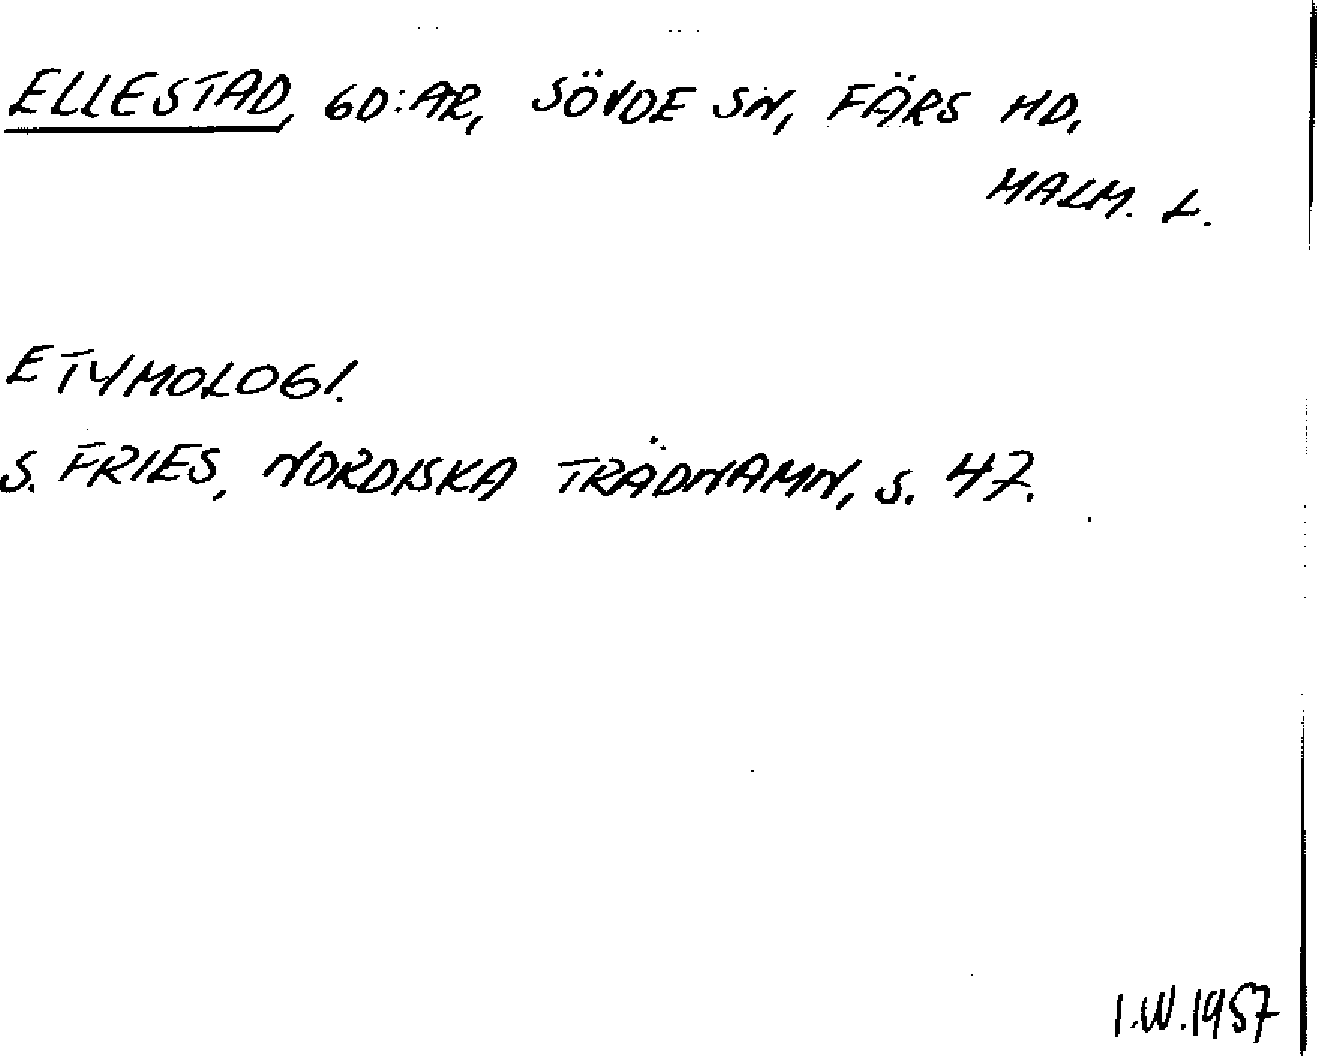 ELLESTAD, GD:AR, SÖVDE SN, FÄRS HD,
MALM. L.
ETYMOLOGI.
S. FRIES, NORDISKA TRÄDNAMN, S. 47.
I.W.1957